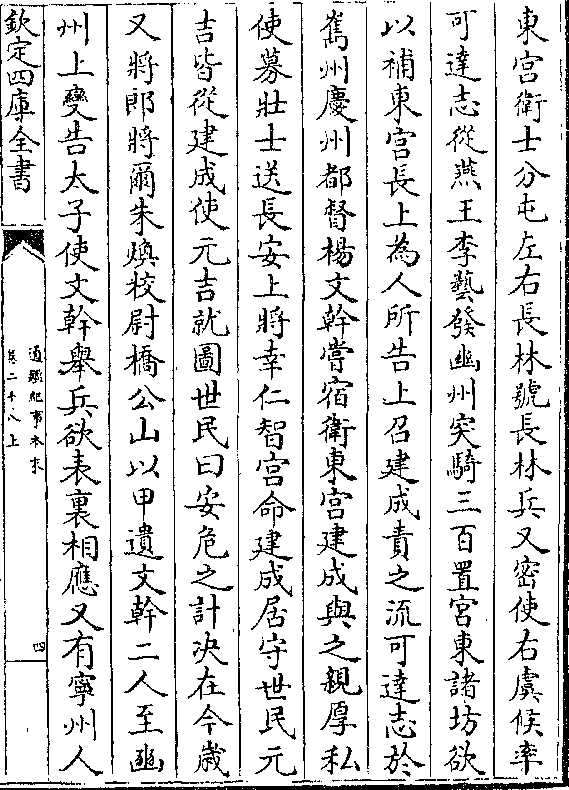 東宫衛士分屯左右長林號長林兵又密使右虞候率
可達志從燕王李藝發幽州突騎三百置宫東諸坊欲
以補東宫長上為人所告上召建成責之流可達志於
嶲州慶州都督楊文幹嘗宿衛東宫建成與之親厚私
使募壯士送長安上將幸仁智宫命建成居守世民元
吉皆從建成使元吉就圖世民曰安危之計決在今歳
又將郎將爾朱煥校尉橋公山以甲遺文幹二人至豳
州上變告太子使文幹舉兵欲表裏相應又有寧州人
欽定四庫全書
通鑑紀事本末
卷二十八上
四